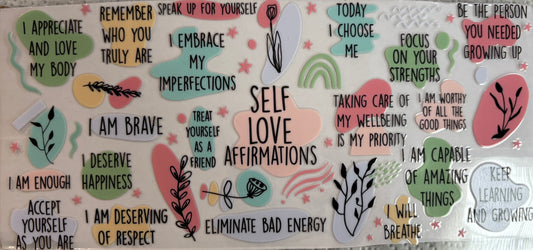 I APPRECIATE
AND LOVE
MY BODY
REMEMBER
WHO YOU
TRULY ARE
SPEAK UP FOR YOURSELF
I EMBRACE
MY
IMPERFECTIONS
TODAY
I CHOOSE
ME
FOCUS
ON YOUR
STRENGTHS
BE THE PERSON
YOU NEEDED
GROWING UP
I AM BRAVE
TREAT
YOURSELF
AS A
FRIEND
SELF
LOVE
AFFIRMATIONS
TAKING CARE OF
MY WELLBEING
IS MY PRIORITY
I AM WORTHY
OF ALL THE
GOOD THINGS
I AM ENOUGH
I DESERVE
HAPPINESS
I AM CAPABLE
OF AMAZING
THINGS
KEEP
LEARNING
AND GROWING
ACCEPT
YOURSELF
AS YOU ARE
I AM DESERVING
OF RESPECT
ELIMINATE BAD ENERGY
I WILL
BREATHE